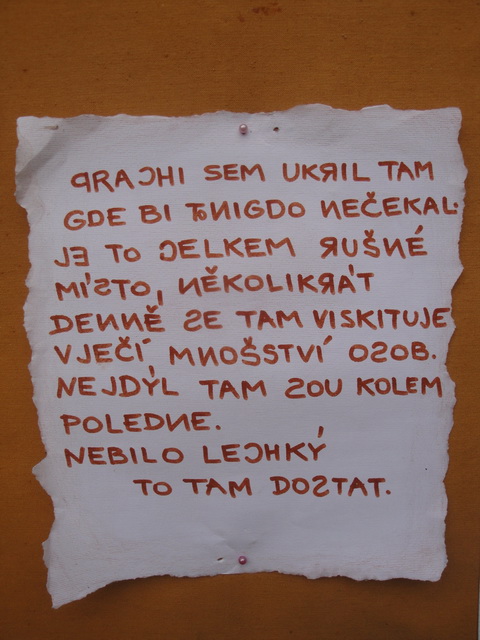 PRACHI SEM UKRIL TAM
GDE BI TONIGDO NEČEKAL.
JE TO CELKEM RUŠNÉ
MÍSTO, NĚKOLIKRÁT
DENNĚ SE TAM VISKITUJE
VJEČÍ MNOŠSTVÍ OSOB.
NEJDÝL TAM SOU KOLEM
POLEDNE.
NEBILO LECHKÝ
TO TAM DOSTAT.